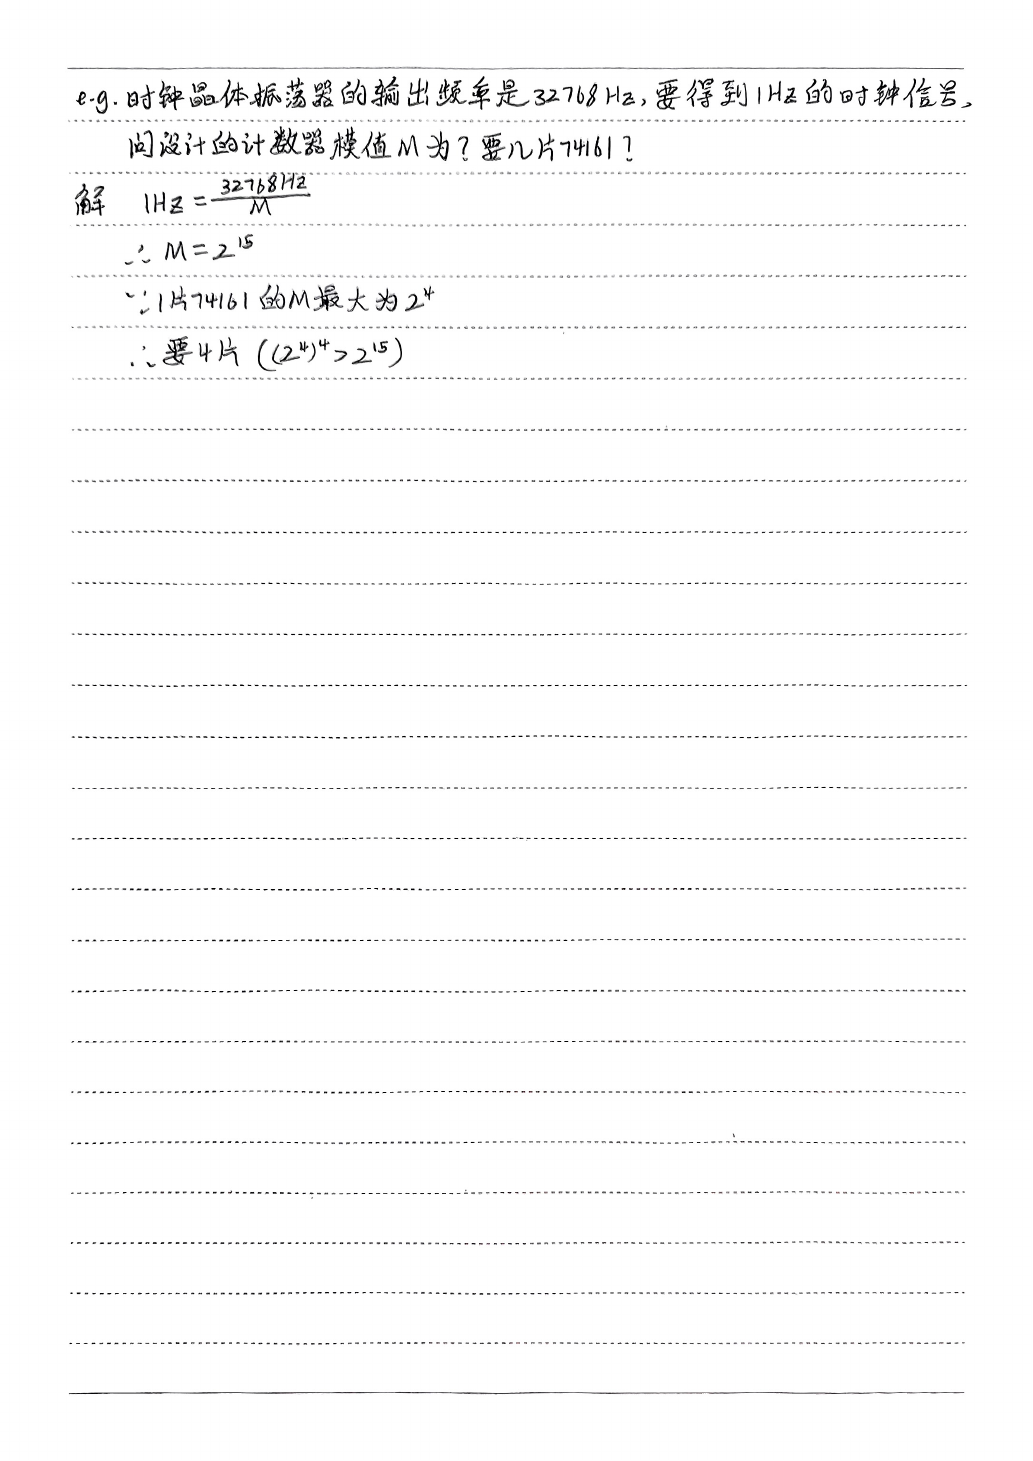 e.g. 时钟晶体振荡器的输出频率是32768Hz,要得到1Hz的时钟信号,
问设计的计数器模值M为?要几片74161?
解 1Hz = 32768Hz / M
∴ M = 2^15
∵ 1片74161的M最大为2^4
∴ 要4片 ((2^4)^4 > 2^15)